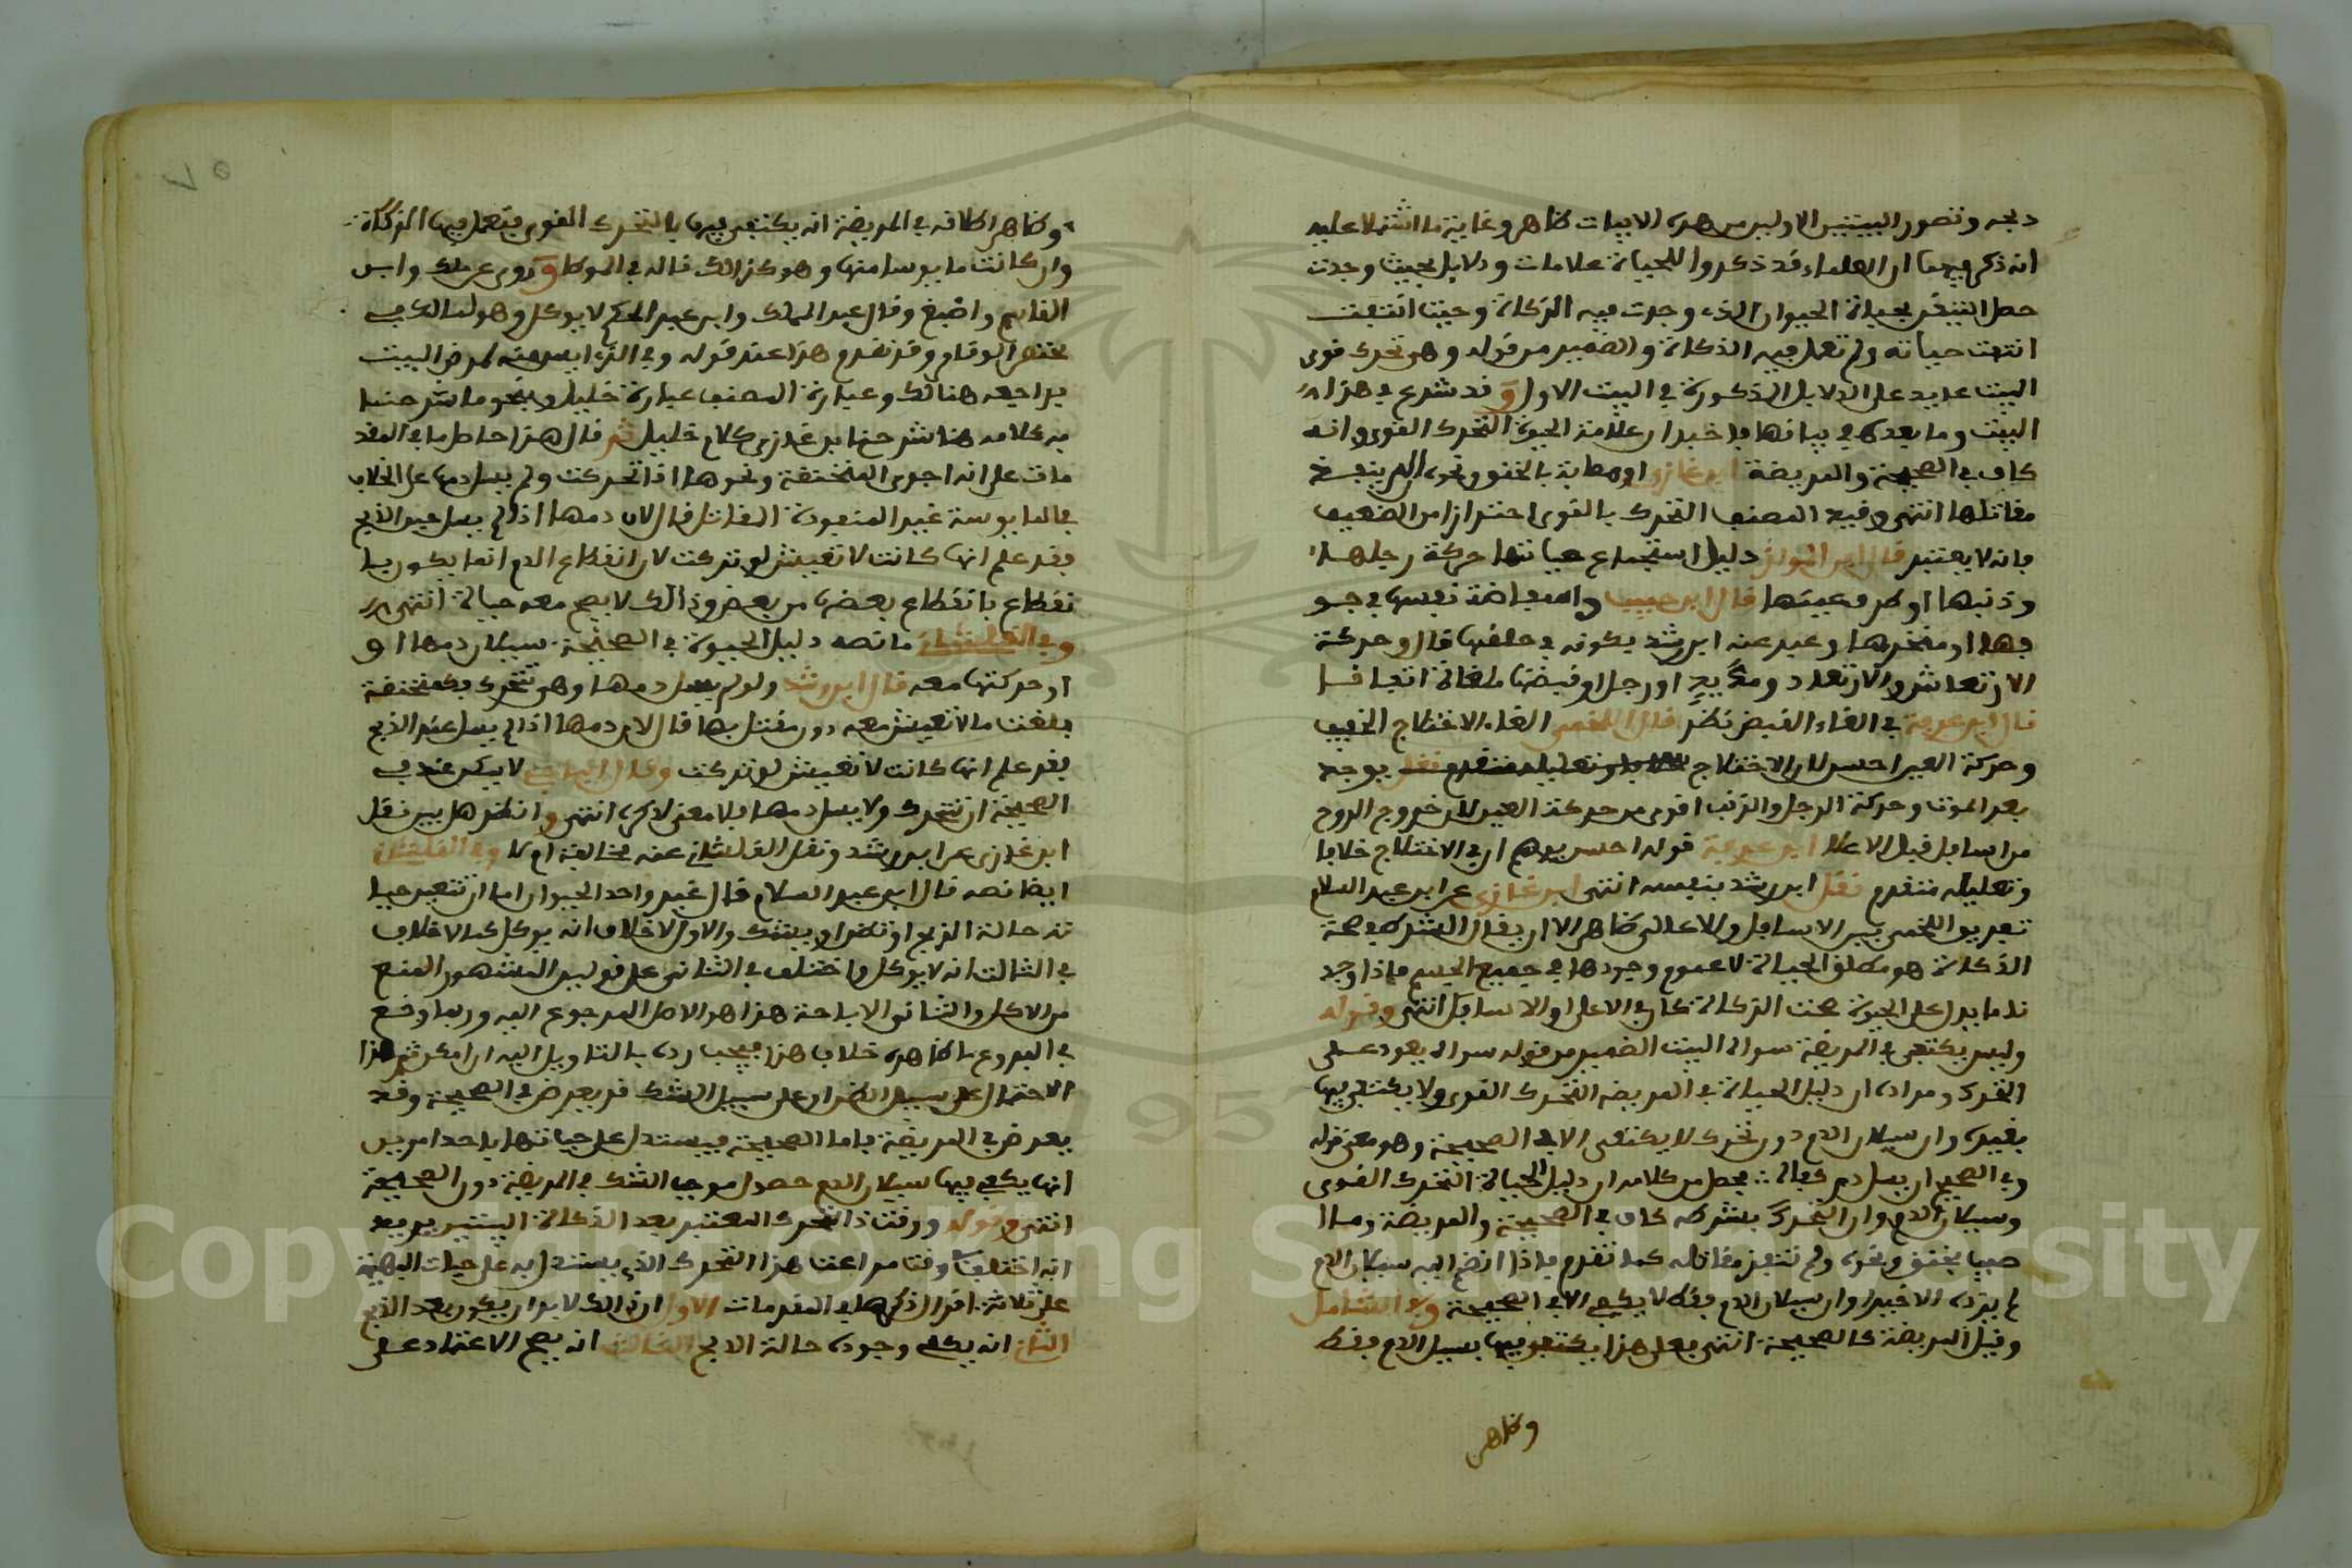 دلجه وتصور البيتين الاولين من هذه الابيات ظاهر وغاية ما اشتملا عليه
انه ذكر فيهما ان العلماء قد ذكروا للحياة علامات ودلايل بحيث وجدت
حصل التيقن بحياة الحيوان الذي وجدت فيه الذكاة وحيث انتفت
انتفت حياته ولم تعمل فيه الذكاة والضمير من قوله وهي تحرك قوى
البيت عايد على الدلايل المذكورة في البيت الاول وقد شرع في هذا
البيت وما بعده في بيانها فاخبر ان علامة الحيوة التحرك القوى وانه
كاف في الصحيحة والمريضة ابن غازي او مصابة بالخنق ونحوه الم ينفسخ
مقاتلها انتهى وقيد المصنف التحرك بالقوى احترازا من الضعيف
فانه لا يعتبر قال ابن المواز دليل استجماع حياتها حركة رجلها
وذنبها او طرف عينها قال ابن حبيب واستفاضة نفسها في جو
فها او منخرها وعبر عنه ابن رشد بكونه في حلقها قال وحركة
الارتعاش والارتعاد ومد يد او رجل او قبضها ملغاة اتفاقا
قال ابن عرفة في الغاء القبض نظر قال اللخمي الغاء الاختلاج الخفيف
وحركة العين احسن لان الاختلاج يوجد
بعد الموت وحركة الرجل والذنب اقوى من حركة العين لان خروج الروح
من اسافل قبل الاعلا ابن عرفة قوله احسن يوهم ان في الاختلاج خلافا
وتعليله متقدم نقل ابن رشد بنفسه انتهى ابن غازي عن ابن عبد السلام
تفريق اللخمي بين الاسافل والاعالي ظاهر الا ان يقال الشرط في صحة
الذكاة هو مطلق الحياة لا عموم وجودها في جميع الجسم فاذا وجد
نا ما يدل على الحيوة صحت الذكاة كان في الاعلى او الاسافل انتهى وقوله
وليس يكتفى في المريضة سواه البيت الضمير من قوله سواه يعود على
التحرك ومراده ان دليل الحياة في المريضة التحرك القوى ولا يكتفى فيها
بغيره وان سيلان الدم دون تحرك لا يكتفى الا في الصحيحة وهو معنى قوله
وفي الصحيح ان يسل دم كفاه فحصل من كلامه ان دليل الحياة التحرك القوى
وسيلان الدم وان التحرك بشرطه كاف في الصحيحة والمريضة وما
صيب بخنق ونحوه ولم تنفذ مقاتله كما تقدم فاذا انضم اليه سيلان الدم
لم يزده الا خيرا وان سيلان الدم فقط لا يكفي الا في الصحيحة وفي الشامل
وقيل المريضة كالصحيحة انتهى فعلى هذا يكتفى فيها بسيل الدم فقط
وظاهر
وظاهر اطلاقه في المريضة انه يكتفى فيها بالتحرك القوى فتعمل فيها الذكاة
وان كانت مايوسا منها وهو كذلك قاله في الموطا وروى عن ملك وابن
القاسم واصبغ وقال عبد الملك وابن عبد الحكم لا يوكل وهو لمالك في
مختصر الوقار وقد تقدم هذا عند قوله وفي الذي ايس منه لمرض البيت
فراجعه هنالك وعبارة المصنف عبارة خليل وبنحو ما شرحنا
به كلامه هنا شرح ابن غازي كلام خليل ثم قال هذا حاصل ما في المقد
مات على انه اجرى المنخنقة ونحوها اذا تحركت ولم يسل دمها على الخلاف
في المايوسة غير المنفوذة المقاتل قال لان دمها اذا لم يسل عند الذبح
فقد علم انها كانت لا تعيش لو تركت لان انقطاع الدم انما يكون با
نقطاع بانقطاع بعضها من بعض وذلك لا يصح معه حياة انتهى
وفي القلشاني ما نصه دليل الحيوة في الصحيحة سيلان دمها او
او حركتها معه قال ابن رشد ولو لم يسل دمها وهي تتحرك فكمنخنقة
بلغت ما لا تعيش معه دون مقتل بها قال لان دمها اذا لم يسل عند الذبح
فقد علم انها كانت لا تعيش لو تركت وقال الباجي لا يبكن عندي في
الصحيحة ان تتحرك ولا يسل دمها فلا معنى لذكره انتهى وانظر هل بين نقل
ابن غازي عن ابن رشد ونقل القلشاني عنه مخالفة ام لا وفي القلشاني
ايضا نصه قال ابن عبد السلام قال غير واحد الحيوان اما ان تتيقن حيا
ته حالة الذبح او تظن او يشك والاول لا خلاف انه يوكل كما لا خلاف
في الثالث انه لا يوكل واختلف في الثاني على قولين المشهور المنع
من الاكل والثاني الاباحة هذا هو الاصل المرجوع اليه وربما وقع
في الفروع ما ظاهره خلاف هذا فيجب رده بالتاويل اليه ان امكن ثم هذا
الاحتمال على سبيل الظن او على سبيل الشك قد يعرض في الصحيحة وقد
يعرض في المريضة فاما الصحيحة فيستدل على حياتها باحد امرين
انها يكفي فيها سيلان الدم حصول موجب الشك في المريضة دون الصحيحة
انتهى وقوله ووقت ذا التحرك المعتبر بعد الذكاة البيتين يريد
انه اختلف وقت مراعات هذا التحرك الذي يستدل به على حيات البهيمة
على ثلاثة اقوال ذكرها في المقدمات الاول ان ذلك لا بد ان يكون بعد الذبح
الثاني انه يكفي وجوده حالة الذبح الثالث انه يصح الاعتماد على